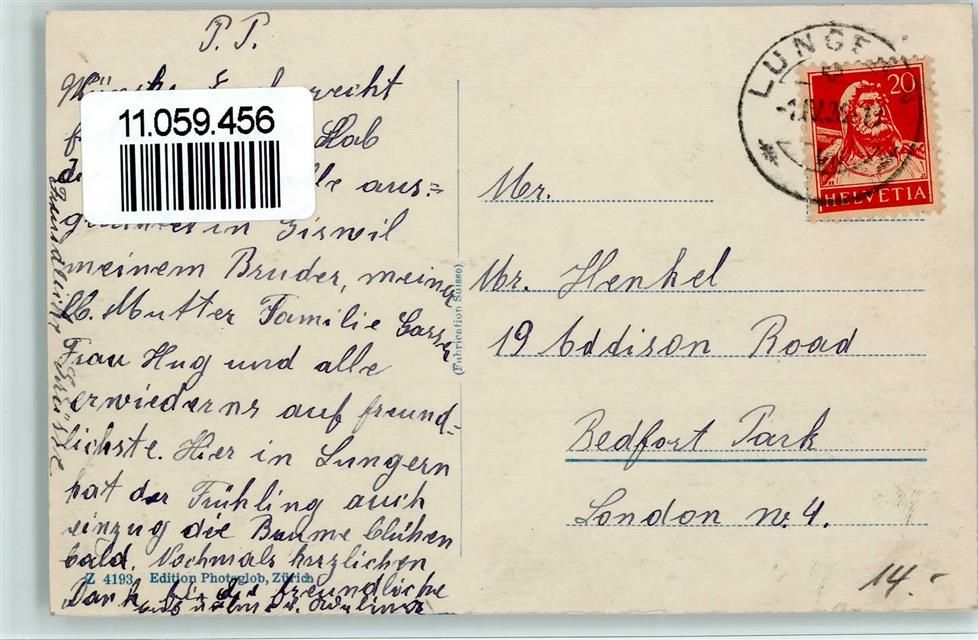 P. P.
recht
11.059.456
Hab
alle aus=
in Giswil
meinem Bruder, meiner
lb. Mutter Familie Gasser
Frau Hug und alle
erwiederns auf freund-
lichste. Hier in Lungern
hat der Frühling auch
einzug die Baume blühen
bald. Nochmals herzlichen
Dank für die freundliche
Z 4193 Edition Photoglob, Zürich
(Fabrication Suisse)
LUNGERN
20
HELVETIA
Mr.
Mr. Henkel
19 Eddison Road
Bedfort Park
London W. 4.
14.-